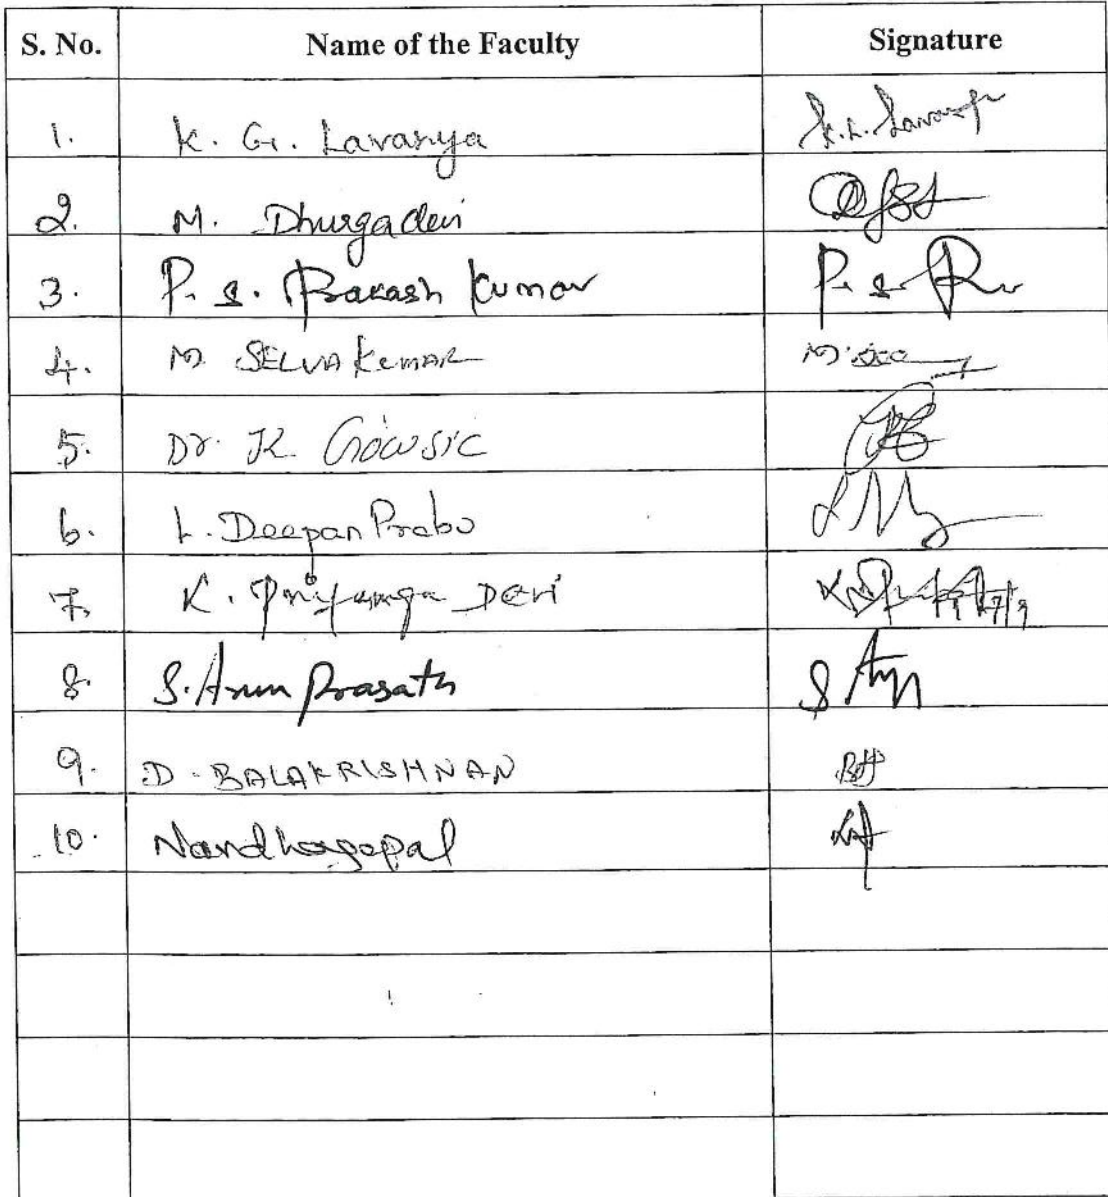 S. No. Name of the Faculty Signature
1. K. G. Lavanya
2. M. Dhurgadevi
3. P. S. Prakash Kumar P. S.
4. M. SELVAKUMAR
5. Dr. K. Gowsic
6. L. Deepan Prabu
7. K. Priyanga Devi
8. S. Arun Prasath
9. D. BALAKRISHNAN
10. Nandhagopal